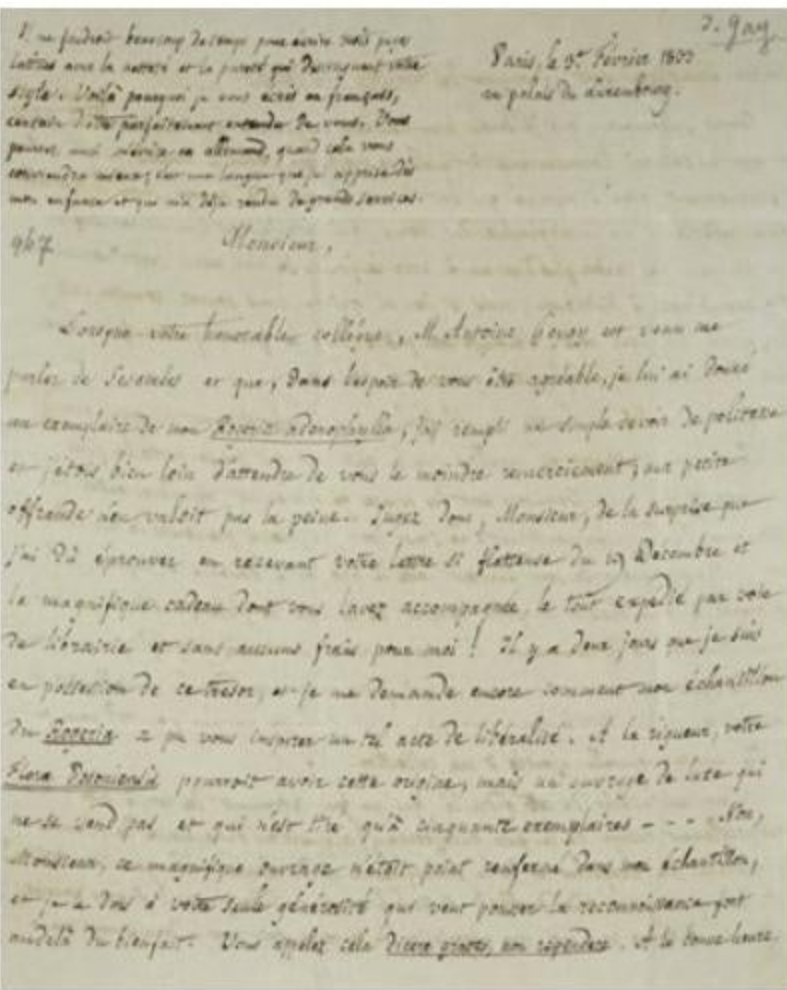 J. Gay
Il me faudroit beaucoup de temps pour écrire trois pages
latines avec la netteté et la pureté qui distinguent votre
style. Voilà pourquoi je vous écris en français,
certain d'être parfaitement entendu de vous. Vous
pouvez aussi m'écrire en allemand, quand cela vous
conviendra mieux; c'est une langue que j'ai apprise dès
mon enfance et qui m'a déjà rendu de grands services.
Paris, le 3e Février
au palais du Luxembourg.
967
Monsieur,
Lorsque votre honorable collègue, M. Antoine est venu me
parler de et que, dans l'espoir de vous être agréable, je lui ai donné
un exemplaire de mon adenophylla, j'ai rempli un simple devoir de politesse
et j'étois bien loin d'attendre de vous le moindre remerciement; ma petite
offrande n'en valoit pas la peine. Jugez donc, Monsieur, de la surprise que
j'ai dû éprouver en recevant votre lettre si flatteuse du 19 Décembre et
le magnifique cadeau dont vous l'avez accompagnée, le tout expédié par voie
de librairie et sans aucuns frais pour moi! Il y a deux jours que je suis
en possession de ce trésor, et je me demande encore comment mon échantillon
du Rogeria a pu vous inspirer un tel acte de libéralité. A la rigueur, votre
Flora Posoniensis pourroit avoir cette origine, mais un ouvrage de luxe qui
ne se vend pas et qui n'est tiré qu'à cinquante exemplaires - - - - Non,
Monsieur, ce magnifique ouvrage n'étoit point renfermé dans mon échantillon,
et je le dois à votre seule générosité qui veut pousser la reconnoissance fort
audelà du bienfait. Vous appelez cela dicere grates, non rependere. A la bonne heure.